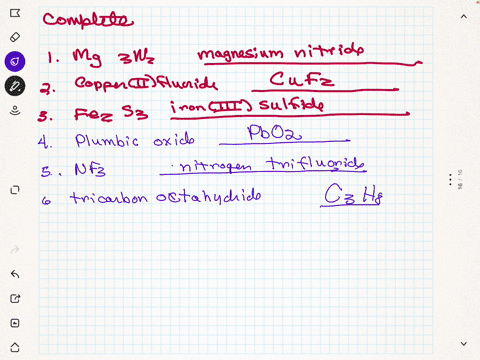 Complete
1. Mg 3N2 magnesium nitride
2. Copper(II) fluoride CuF2
3. Fe2 S3 iron(III) sulfide
4. Plumbic oxide PbO2
5. NF3 nitrogen trifluoride
6 tricarbon octahydride C3H8
16 / 16